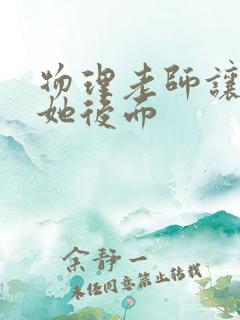 物理老師讓
她後而
余静一
未经同意禁止转载